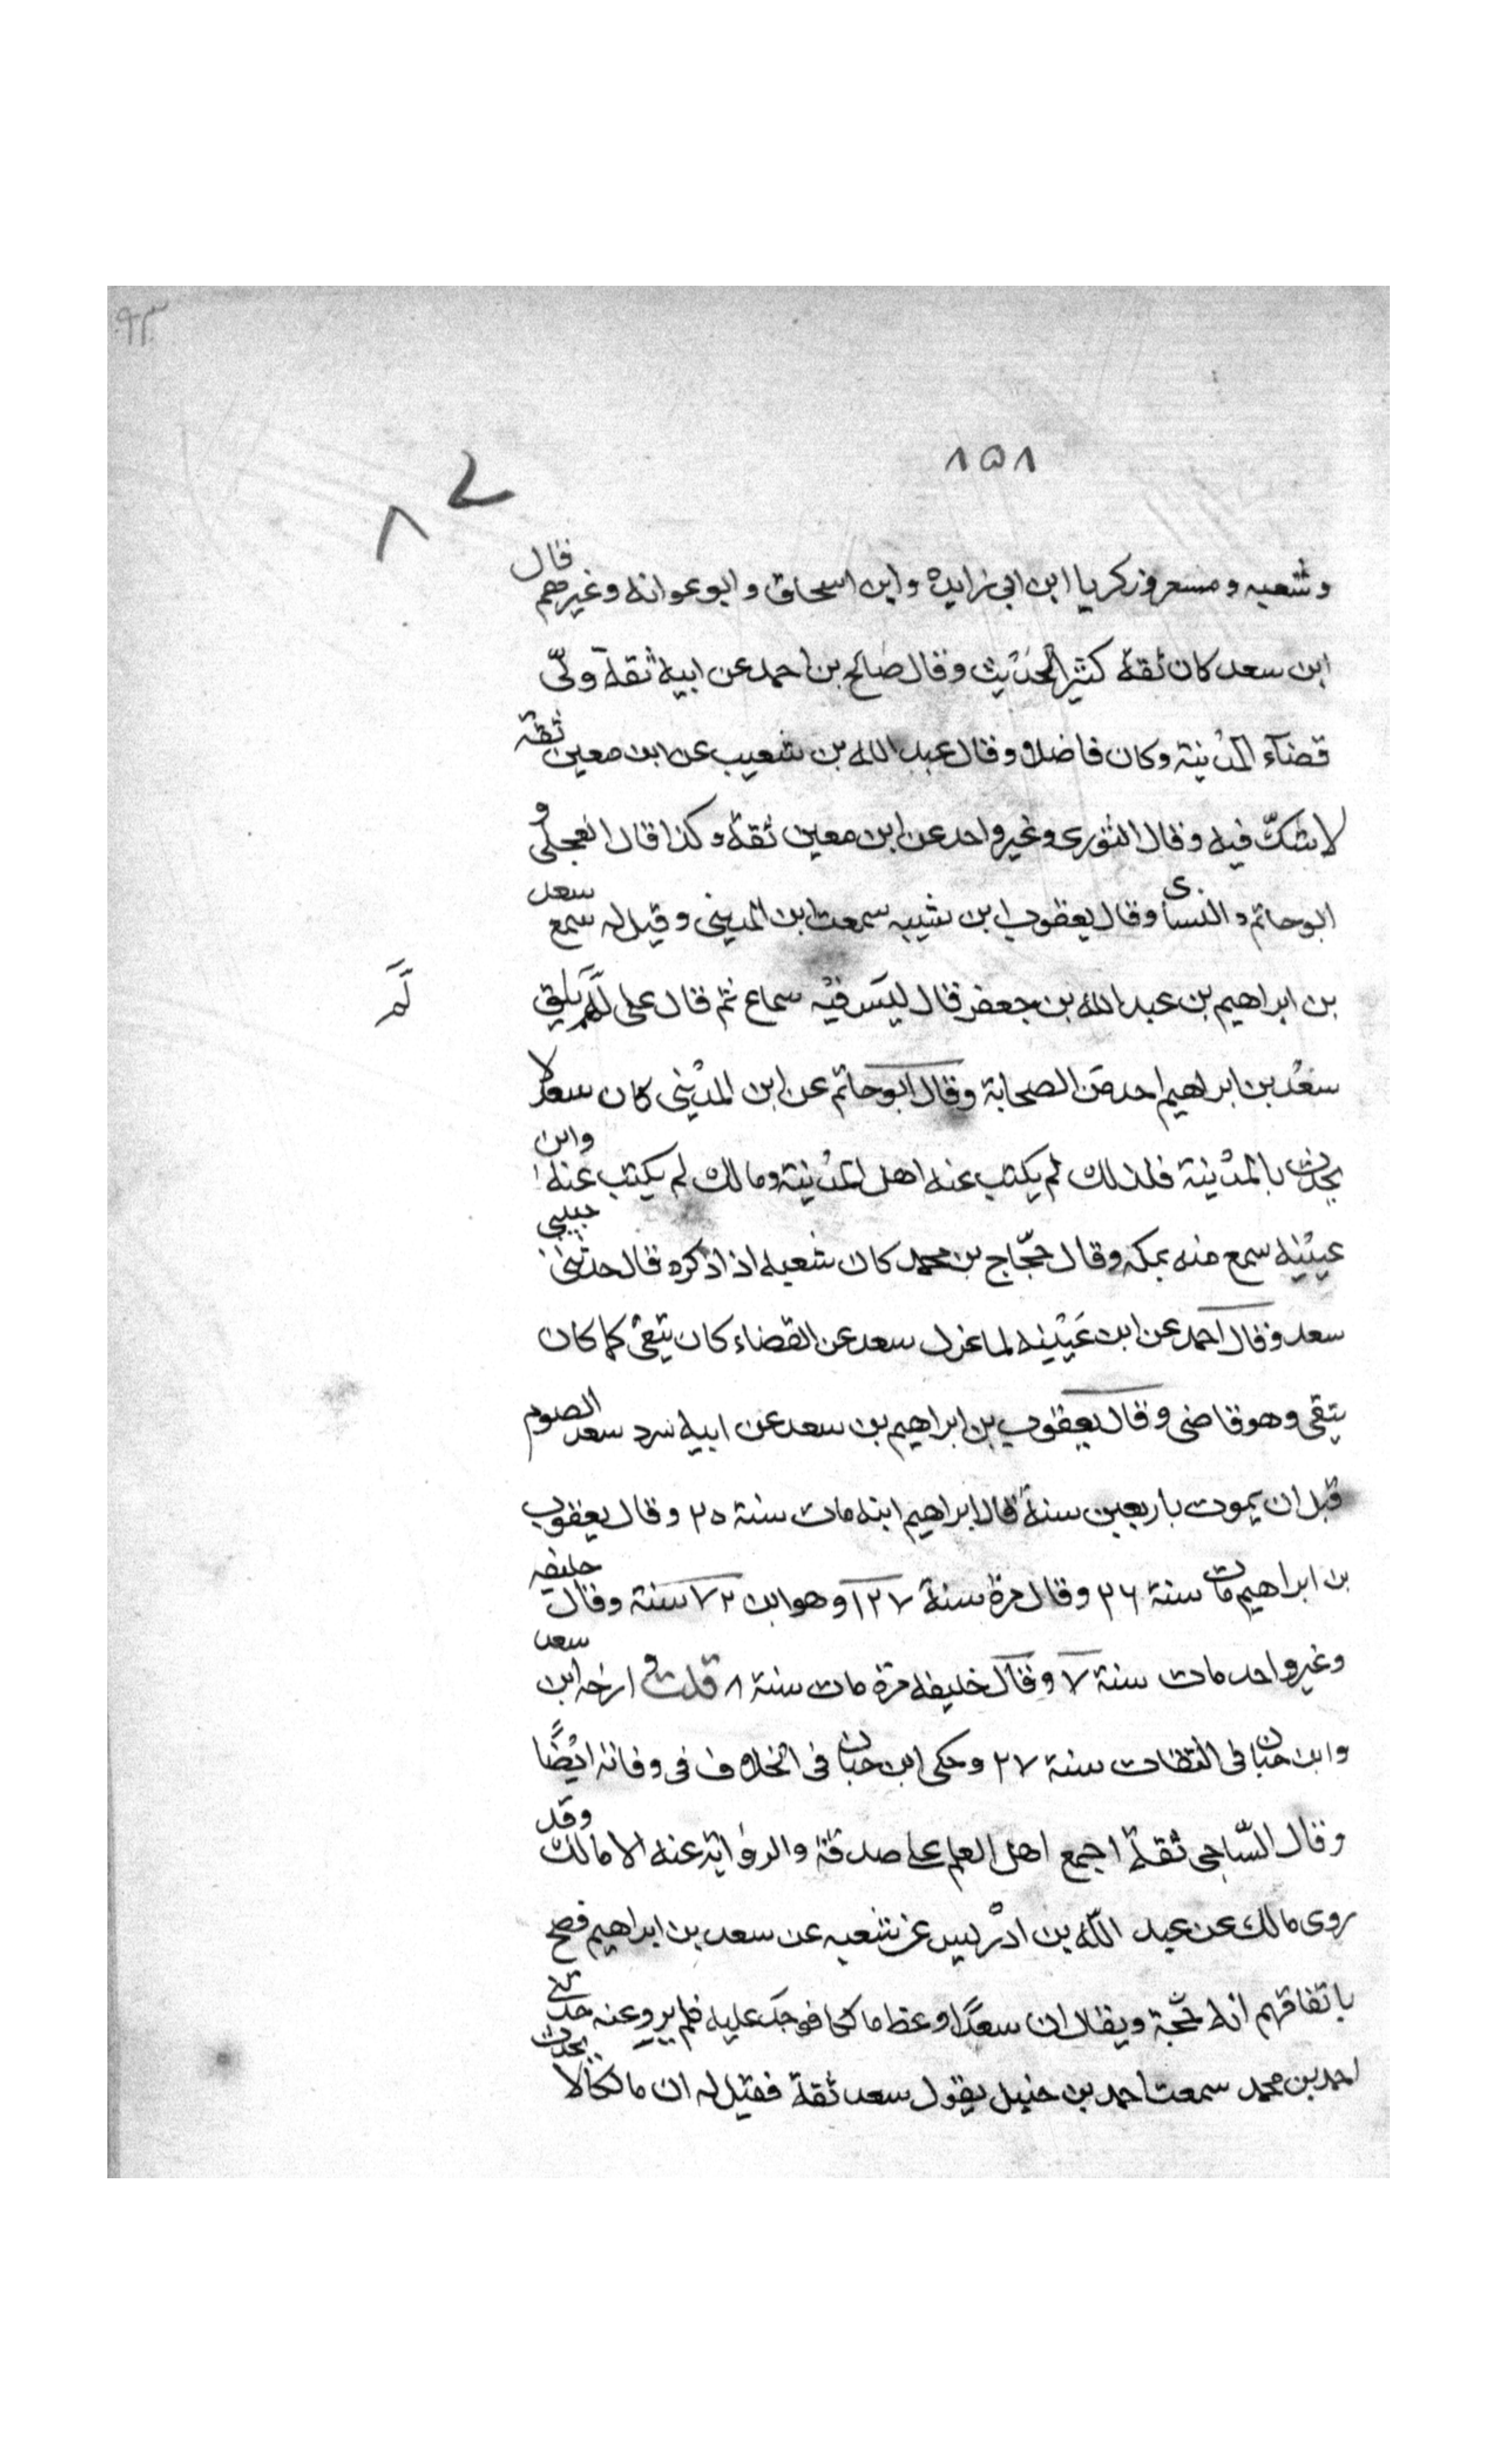 ٩٣
٨٥٨
٨
وشعبه ومسعر وزكريا ابن ابى زايده وابن اسحاق وابو عوانه وغيرهم قال
ابن سعد كان ثقة كثير الحديث وقال صالح بن احمد عن ابيه ثقة ولّى
قضآء المدينة وكان فاضلا وقال عبد الله بن شعيب عن ابن معين ثقة
لا شكّ فيه وقال الثورى وغير واحد عن ابن معين ثقة وكذا قال العجلى و
ابو حاتم والنساى وقال يعقوب ابن شيبه سمعت ابن المدينى وقيل له سمع سعد
بن ابراهيم بن عبد الله بن جعفر قال ليس فيه سماع ثم قال على لم يلق
لم
سعد بن ابراهيم احد من الصحابة وقال ابو حاتم عن ابن المدينى كان سعد لا
يحدث بالمدينة فلذلك لم يكتب عنه اهل المدينة ومالك لم يكتب عنه وابن
عيينه سمع منه بمكه وقال حجّاج بن محمد كان شعبه اذا ذكره قال حدثنى حبيبى
سعد وقال احمد عن ابن عيينه لما عزل سعد عن القضاء كان يتقى كما كان
يتقى وهو قاضى وقال يعقوب بن ابراهيم بن سعد عن ابيه سرد سعد الصوم
قبل ان يموت باربعين سنة قال ابراهيم ابنه مات سنة ٢٥ وقال يعقوب
بن ابراهيم مات سنة ٢٦ وقال مرة سنة ١٢٧ وهو ابن ٧٢ سنة وقال خليفه
وغير واحد مات سنة ٧ وقال خليفه مرة مات سنة ٨ قلت وارخه ابن سعد
وابن حبان فى الثقات سنة ٢٧ وحكى ابن حبان فى الخلاف فى وفاته ايضًا
وقال السّاجى ثقة اجمع اهل العلم على صدقة والرواية عنه الا مالك وقد
روى مالك عن عبد الله بن ادريس عن شعبه عن سعد بن ابراهيم فصح
باتفاقهم انه حجة ويقال ان سعدًا وعظ مالكا فوجد عليه فلم يرو عنه
احمد بن محمد سمعت احمد بن حنبل يقول سعد ثقة فقيل له ان مالكا لا يحدث